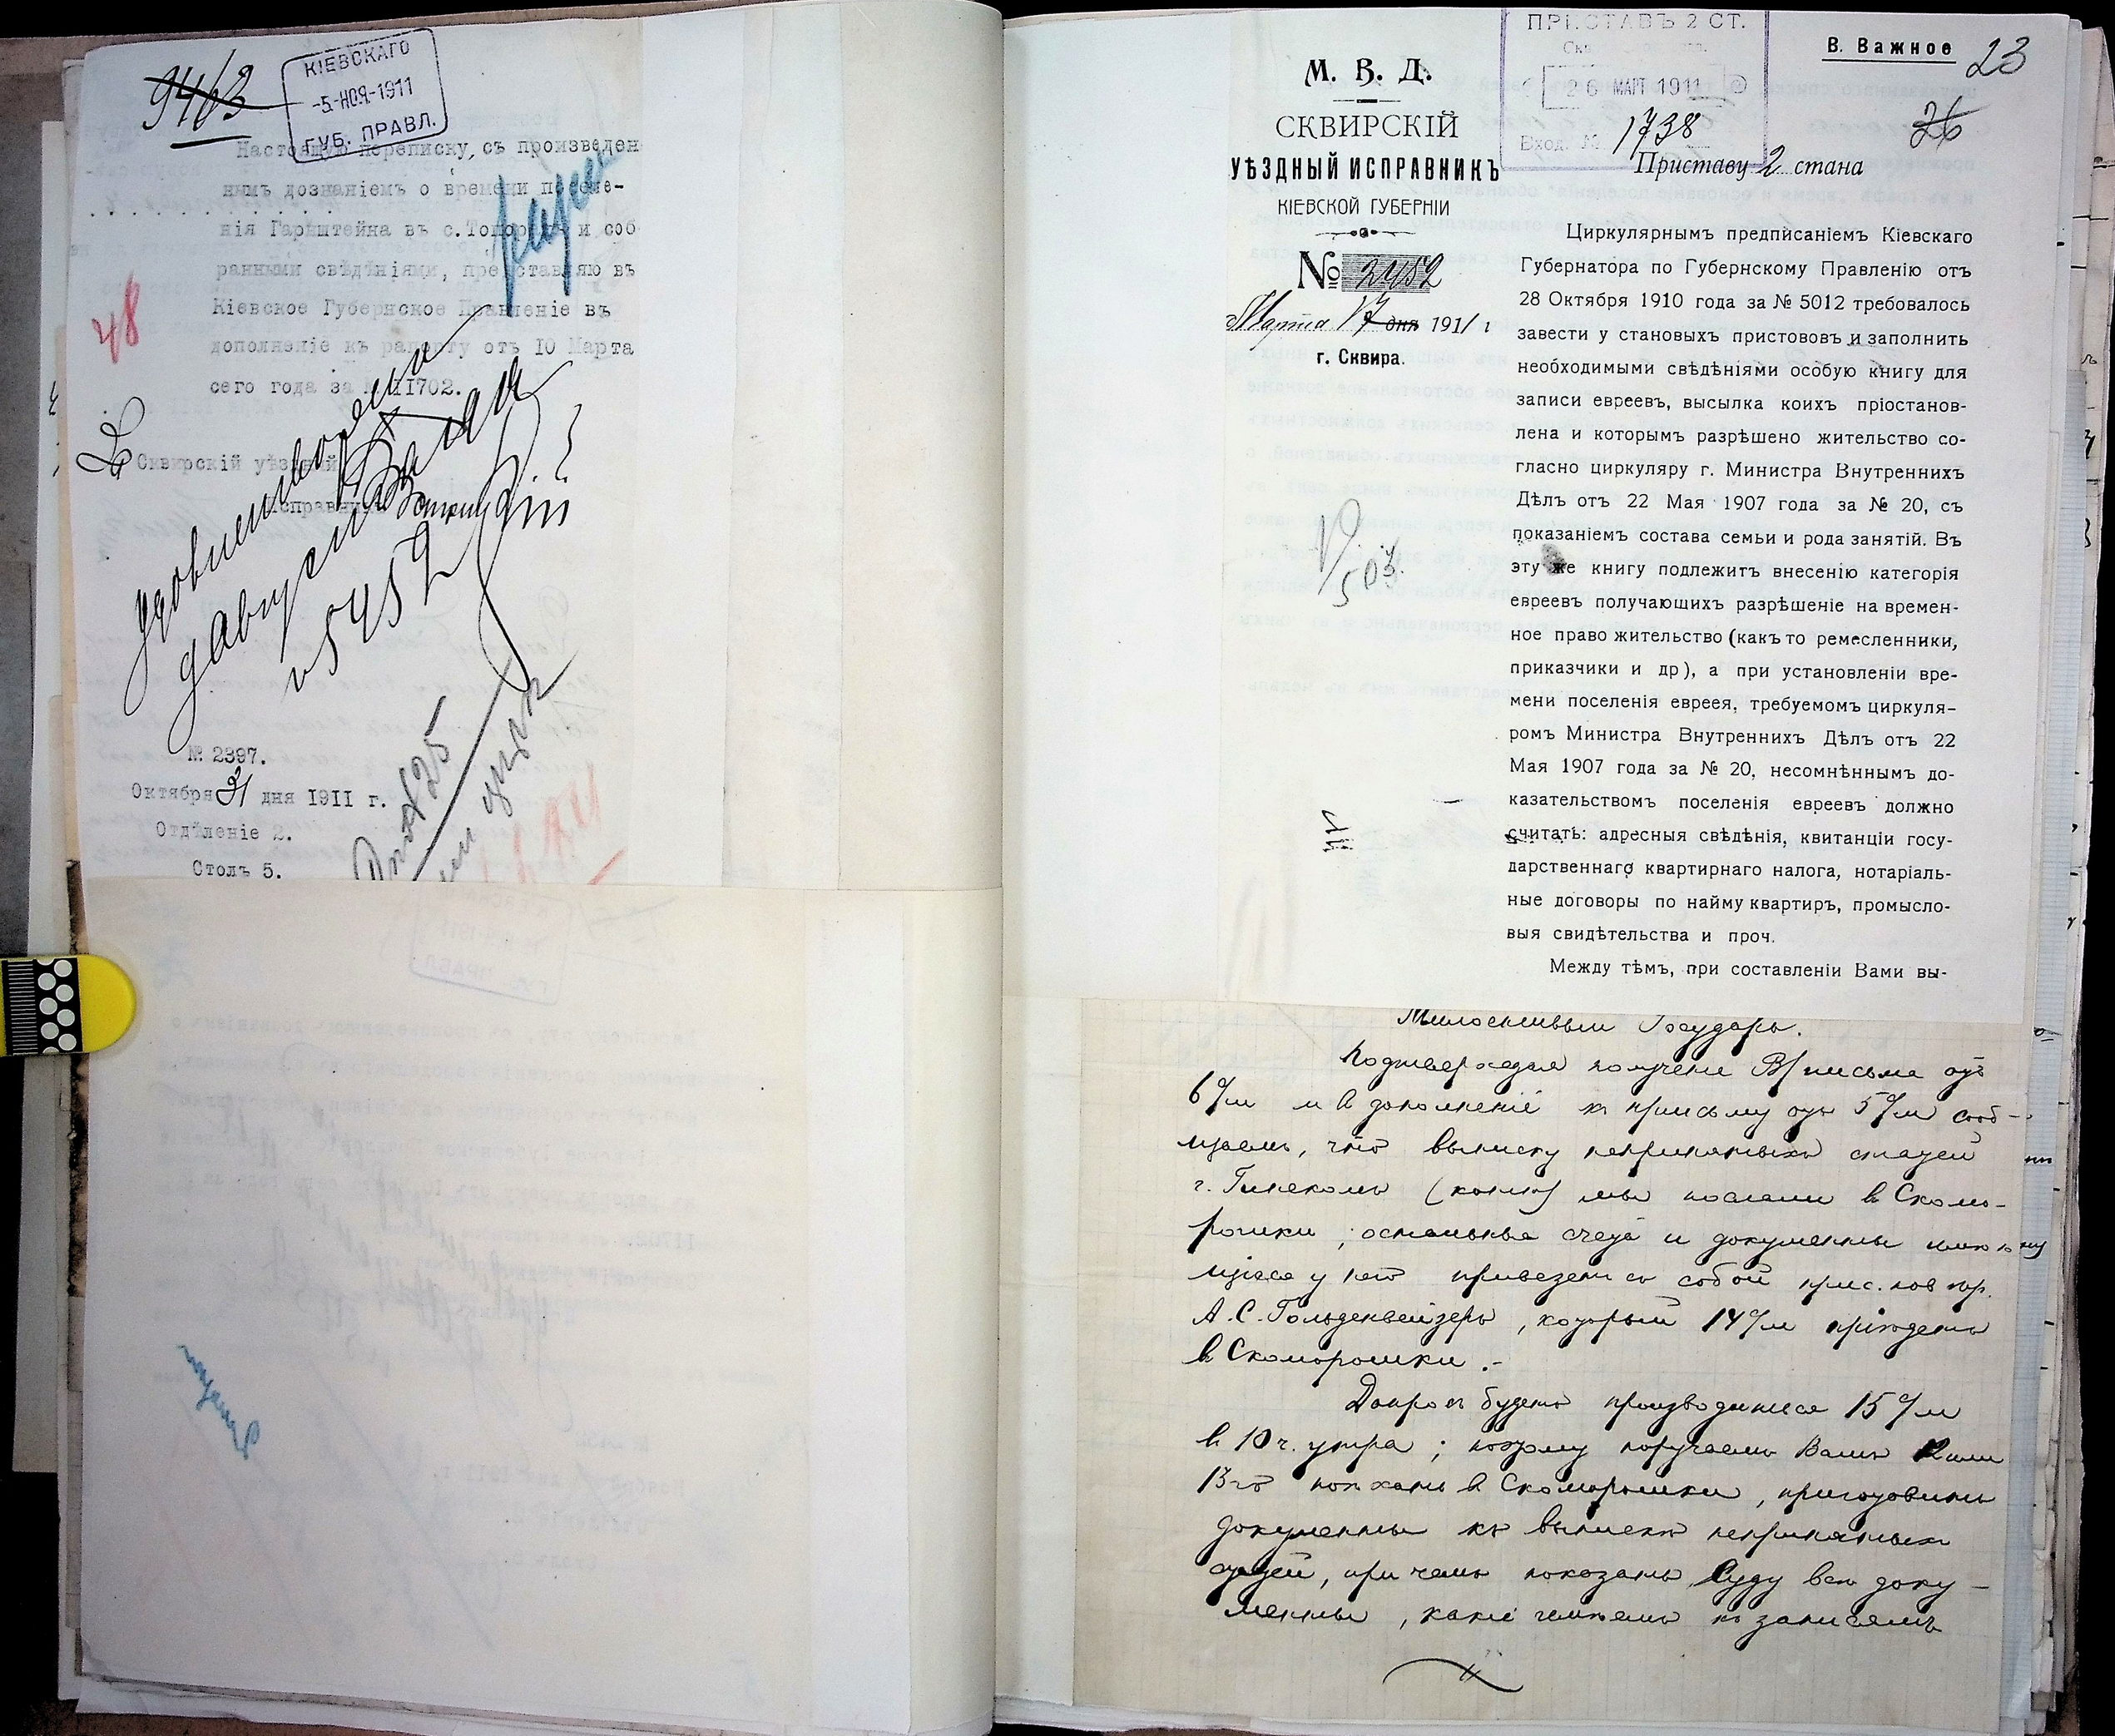 9463
КІЕВСКАГО
-5-НОЯ-1911
ГУБ. ПРАВЛ.
Настоящую переписку, съ произведен
нымъ дознаніемъ о времени поселе-
нія Гарштейна въ с. и соб
ранными свѣдѣніями, представляю въ
Кіевское Губернское Правленіе въ
дополненіе къ рапорту отъ 10 Марта
сего года за № 11702.
48
Сквирскій уѣздный
Исправникъ
№ 2397.
Октября 31 дня 1911 г.
Отдѣленіе 2.
Столъ 5.
М. В. Д.
СКВИРСКІЙ
УѢЗДНЫЙ ИСПРАВНИКЪ
КІЕВСКОЙ ГУБЕРНІИ
№ 2452
Марта 17 дня 1911 г
г. Сквира.
ПРИСТАВЪ 2 СТ.
26 МАРТ 1911
Вход. № 1738
В. Важное
23
26
Приставу 2 стана
Циркулярнымъ предписаніемъ Кіевскаго
Губернатора по Губернскому Правленію отъ
28 Октября 1910 года за № 5012 требовалось
завести у становыхъ пристововъ и заполнить
необходимыми свѣдѣніями особую книгу для
записи евреевъ, высылка коихъ пріостанов-
лена и которымъ разрѣшено жительство со-
гласно циркуляру г. Министра Внутреннихъ
Дѣлъ отъ 22 Мая 1907 года за № 20, съ
показаніемъ состава семьи и рода занятій. Въ
эту же книгу подлежитъ внесенію категорія
евреевъ получающихъ разрѣшеніе на времен-
ное право жительство (какъ то ремесленники,
приказчики и др), а при установленіи вре-
мени поселенія евреея, требуемомъ циркуля-
ромъ Министра Внутреннихъ Дѣлъ отъ 22
Мая 1907 года за № 20, несомнѣннымъ до-
казательствомъ поселенія евреевъ должно
считать: адресныя свѣдѣнія, квитанціи госу-
дарственнаго квартирнаго налога, нотаріаль-
ные договоры по найму квартиръ, промысло-
выя свидѣтельства и проч.
Между тѣмъ, при составленіи Вами вы-
503.
Милостивый Государь.
Подтверждая получение В/ письма отъ
6 с/м и в дополненіе къ письму отъ 5 с/м сооб-
щаемъ, что выписку непринятыхъ статей
г. (копію) мы послали в Скомо-
рошки; остальные счета и документы имею
щіеся у него привезетъ съ собой прис. пов.
А. С. Гольденвейзеръ, который 14 с/м пріѣдетъ
в Скоморошки.-
Допросъ будетъ производиться 15 с/м
в 10 ч. утра; поэтому поручаемъ Вамъ
13-го поѣхать в Скоморошки, приготовить
документы къ выпискѣ непринятыхъ
статей, при чемъ показать Суду всѣ доку-
менты, какіе къ записямъ